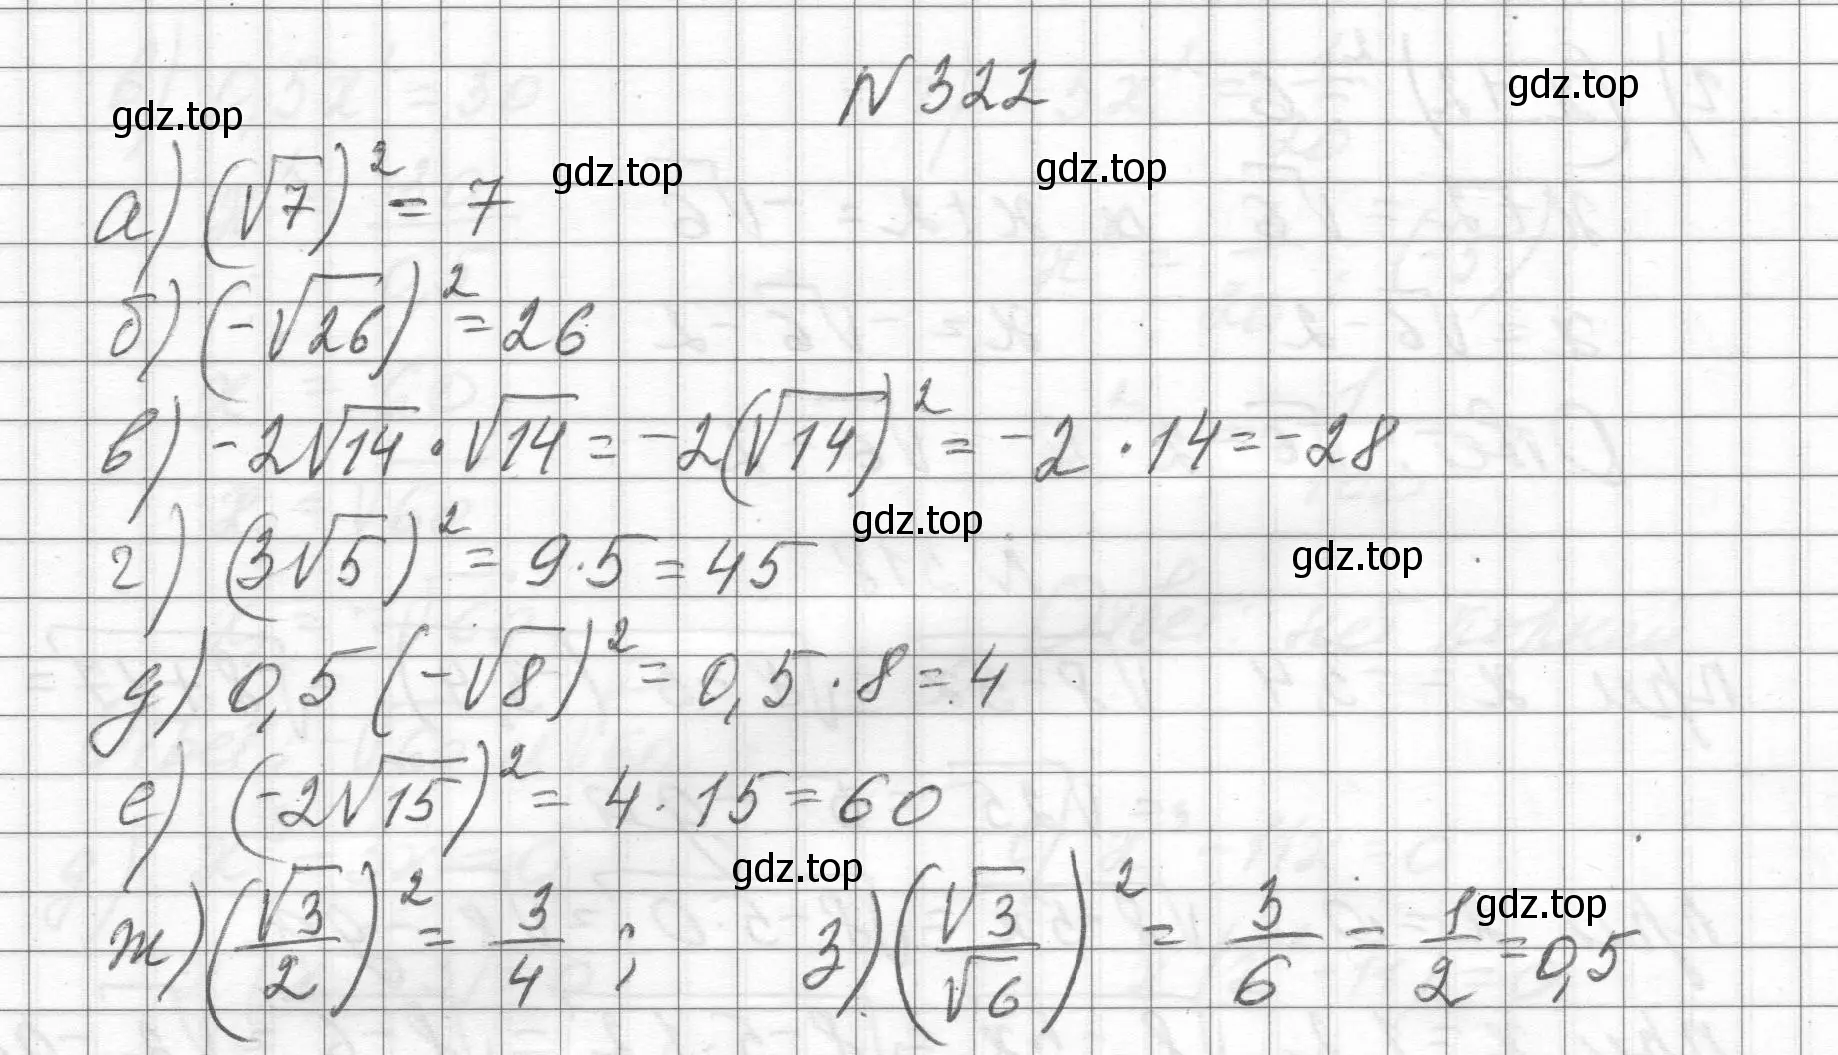 N 322
gdz.top
gdz.top
gdz.top
gdz.top
а) (√7)² = 7
б) (-√26)² = 26
в) -2√14 · √14 = -2(√14)² = -2 · 14 = -28
gdz.top
gdz.top
г) (3√5)² = 9 · 5 = 45
д) 0,5 (-√8)² = 0,5 · 8 = 4
е) (-2√15)² = 4 · 15 = 60
gdz.top
gdz.top
ж) (√3/2)² = 3/4 ; з) (√3/√6)² = 3/6 = 1/2 = 0,5